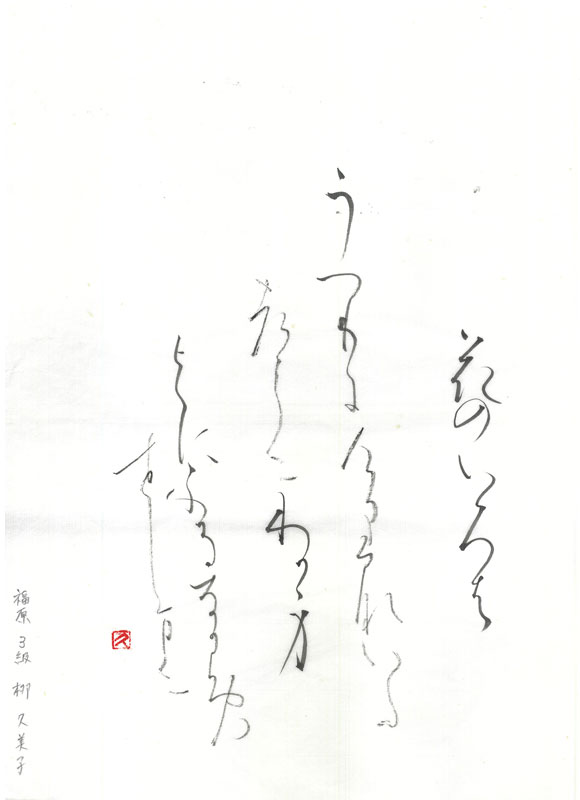 花のいろは
うつりにけりないた
づらにわか身
よにふるなかめ
せしまに
久
福原 3級 柳 久美子